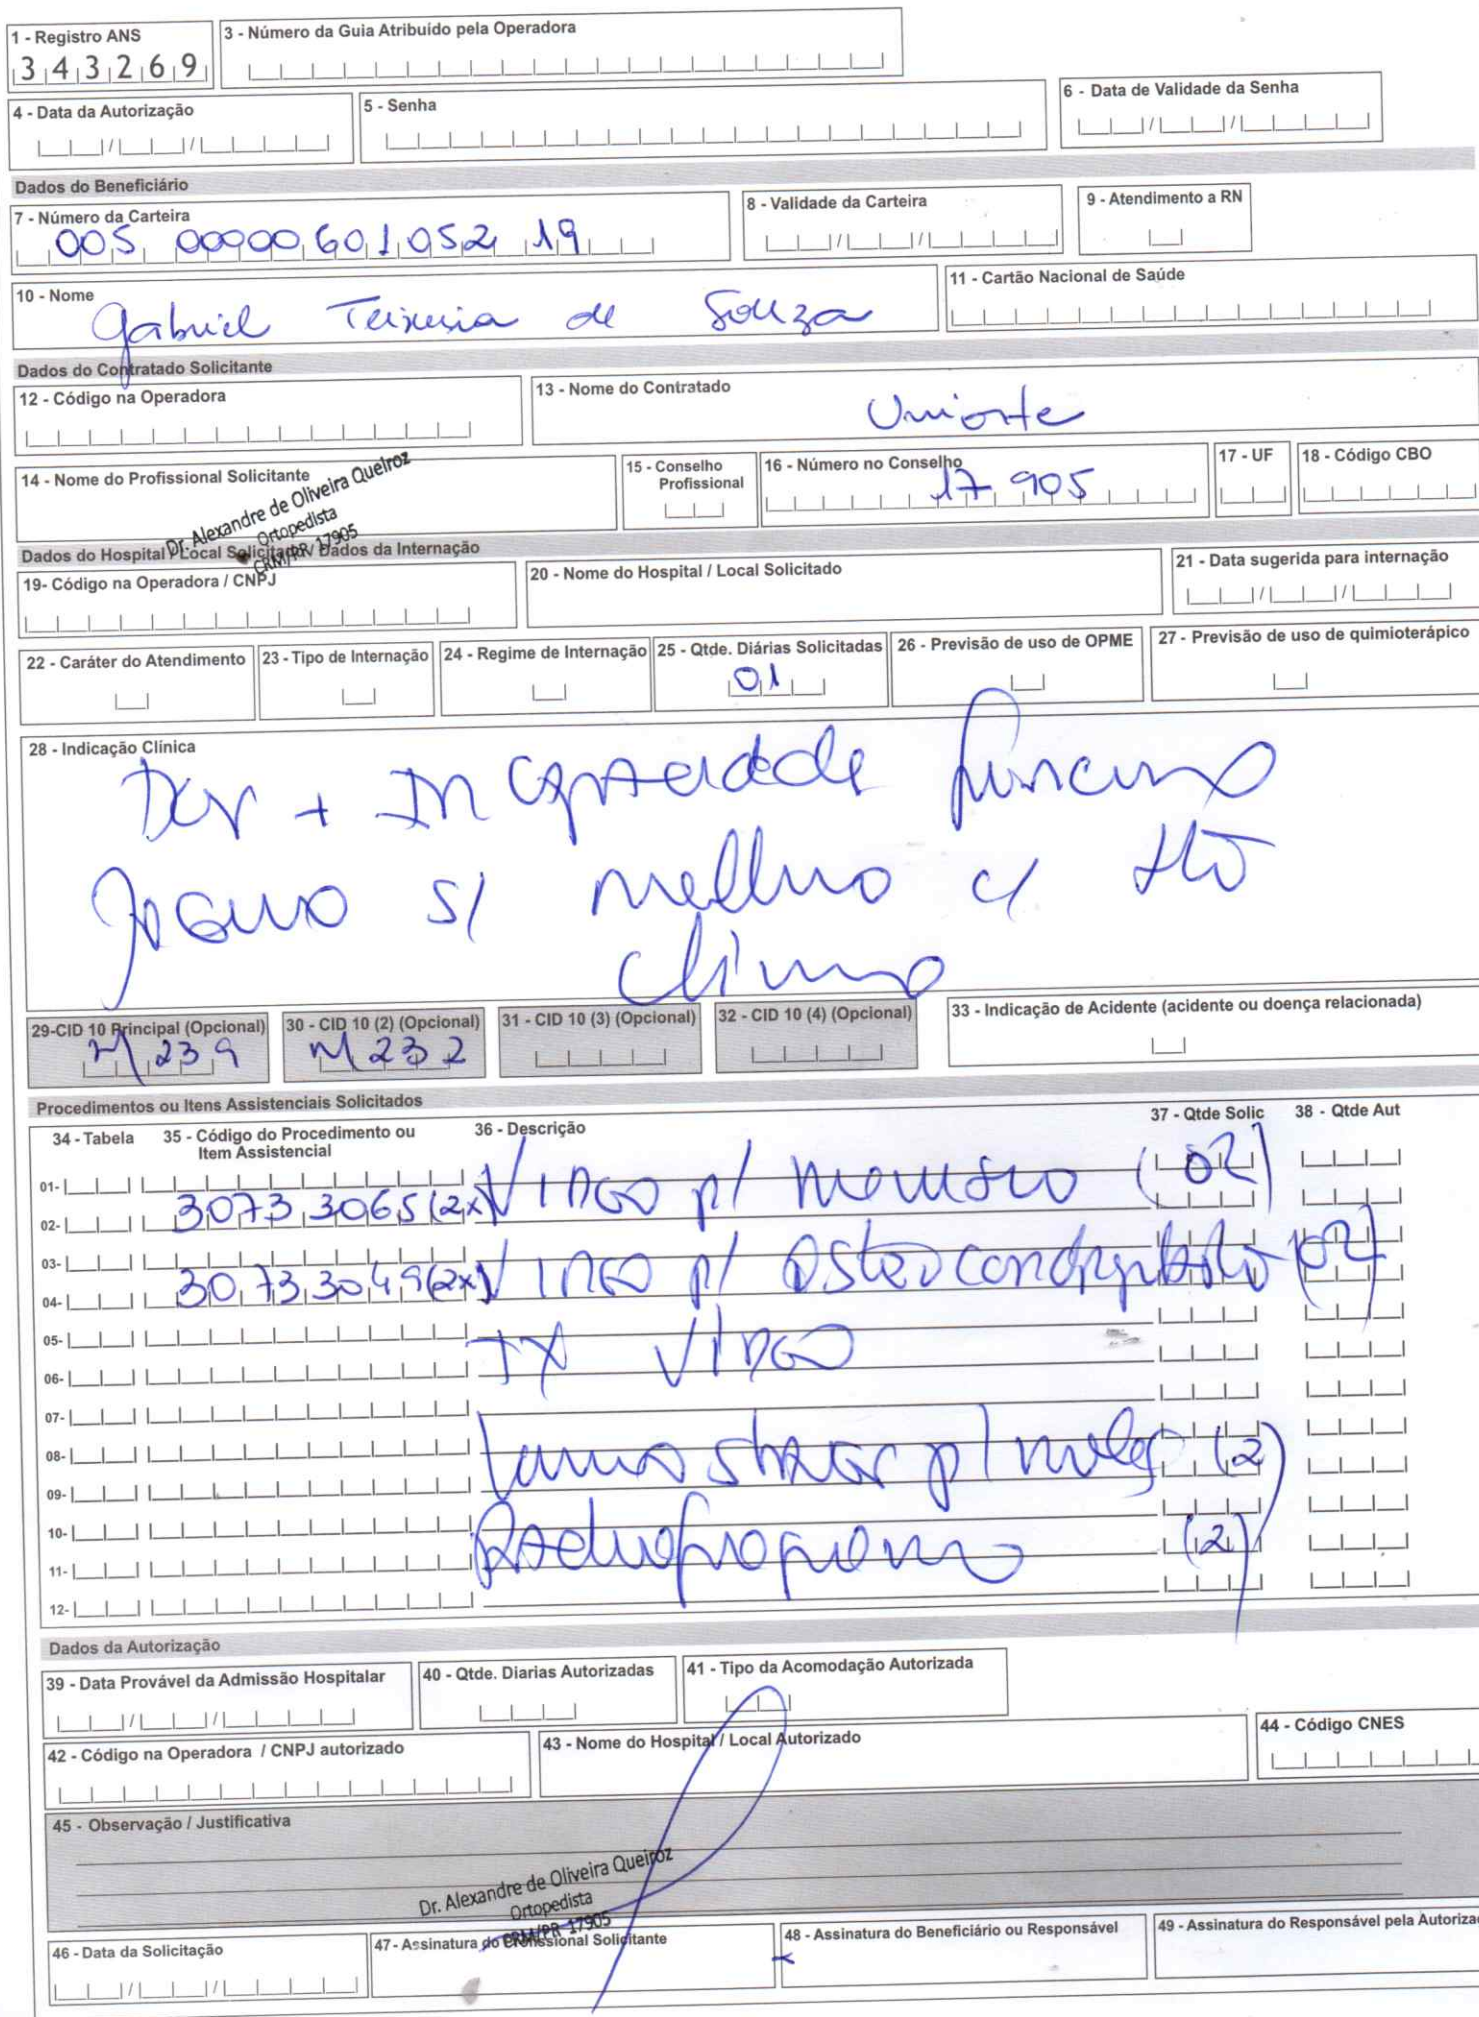 1 - Registro ANS
343269
3 - Número da Guia Atribuído pela Operadora
4 - Data da Autorização
5 - Senha
6 - Data de Validade da Senha
Dados do Beneficiário
7 - Número da Carteira
005 00000 601052 19
8 - Validade da Carteira
9 - Atendimento a RN
10 - Nome
Gabriel Teixeira de Souza
11 - Cartão Nacional de Saúde
Dados do Contratado Solicitante
12 - Código na Operadora
13 - Nome do Contratado
Uniorte
14 - Nome do Profissional Solicitante
Dr. Alexandre de Oliveira Queiroz
Ortopedista
CRM/PR 17905
15 - Conselho Profissional
16 - Número no Conselho
17 905
17 - UF
18 - Código CBO
Dados do Hospital / Local Solicitado / Dados da Internação
19- Código na Operadora / CNPJ
20 - Nome do Hospital / Local Solicitado
21 - Data sugerida para internação
22 - Caráter do Atendimento
23 - Tipo de Internação
24 - Regime de Internação
25 - Qtde. Diárias Solicitadas
01
26 - Previsão de uso de OPME
27 - Previsão de uso de quimioterápico
28 - Indicação Clínica
Dor + Incapacidade
s/ c/
29-CID 10 Principal (Opcional)
M 239
30 - CID 10 (2) (Opcional)
M 232
31 - CID 10 (3) (Opcional)
32 - CID 10 (4) (Opcional)
33 - Indicação de Acidente (acidente ou doença relacionada)
Procedimentos ou Itens Assistenciais Solicitados
34 - Tabela
35 - Código do Procedimento ou Item Assistencial
36 - Descrição
37 - Qtde Solic
38 - Qtde Aut
01-
02- 30733065 (2x) Video p/ (02)
03-
04- 30733049 (2x) Video p/ (02)
05-
06- TX Video
07-
08- p/ (2)
09-
10-
11- (2)
12-
Dados da Autorização
39 - Data Provável da Admissão Hospitalar
40 - Qtde. Diarias Autorizadas
41 - Tipo da Acomodação Autorizada
42 - Código na Operadora / CNPJ autorizado
43 - Nome do Hospital / Local Autorizado
44 - Código CNES
45 - Observação / Justificativa
Dr. Alexandre de Oliveira Queiroz
Ortopedista
CRM/PR 17905
46 - Data da Solicitação
47 - Assinatura do Profissional Solicitante
48 - Assinatura do Beneficiário ou Responsável
49 - Assinatura do Responsável pela Autoriza